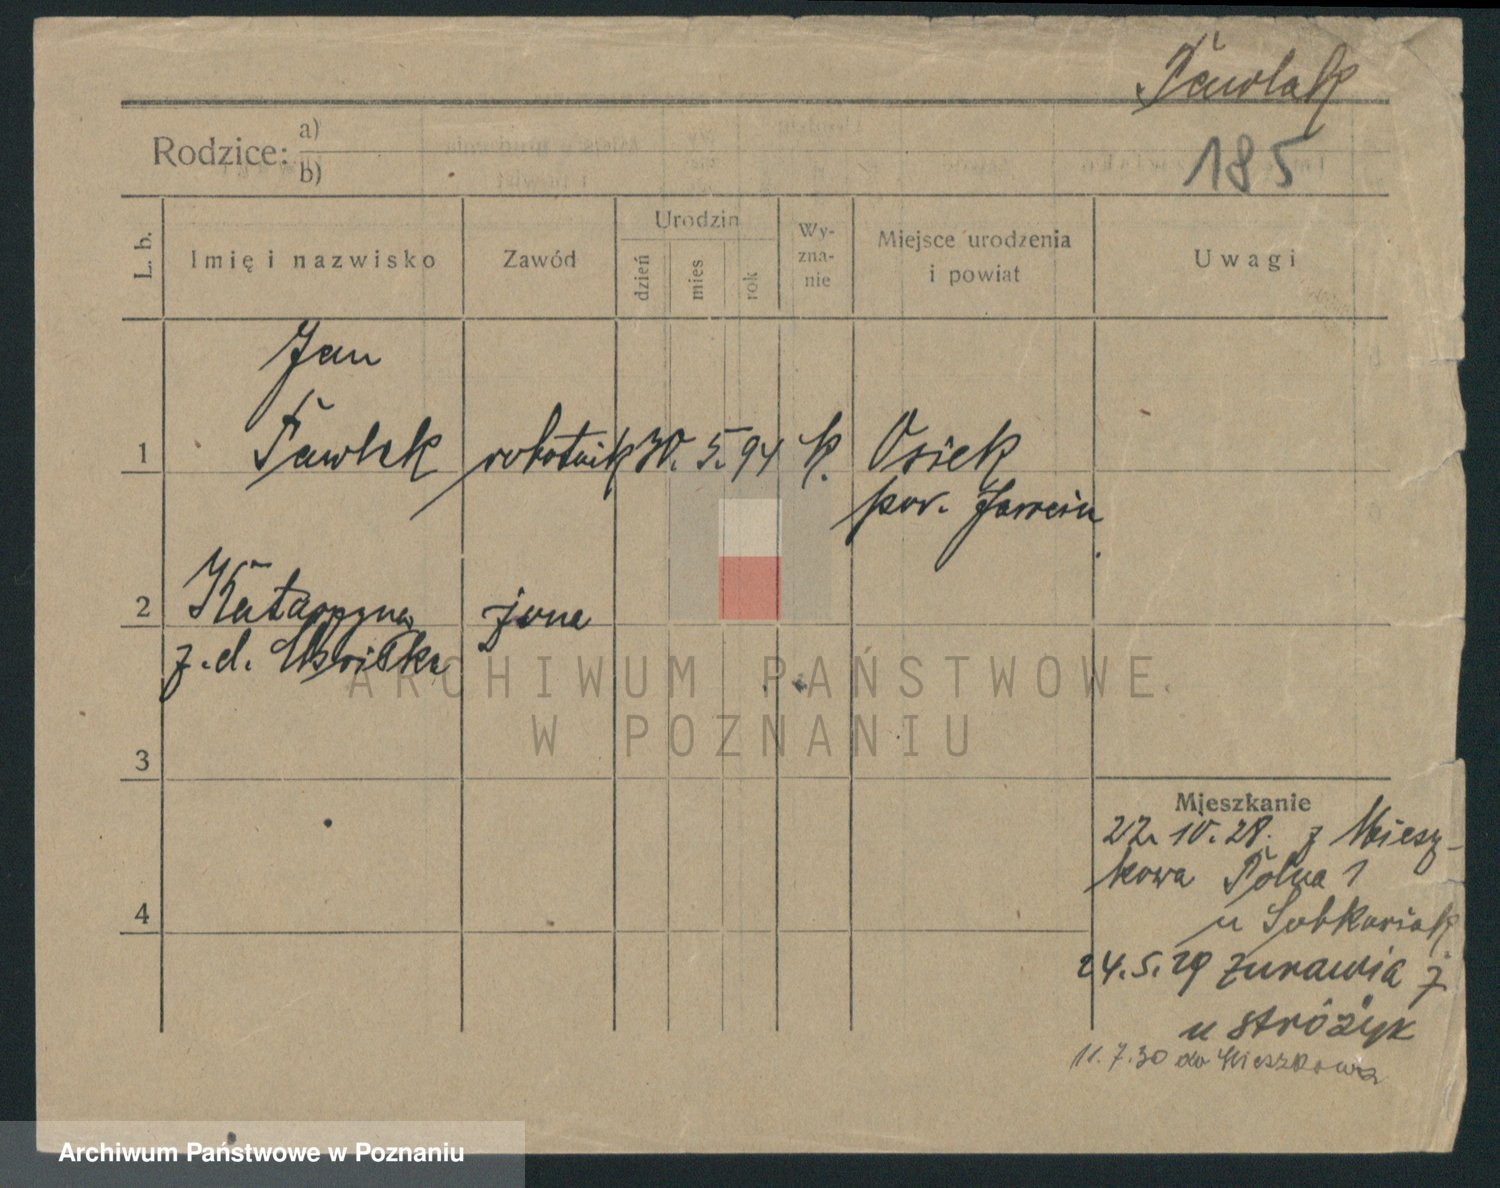 Pawlak
185
Rodzice: a)
b)
L. b.
Imię i nazwisko
Zawód
Urodzin
dzień
mies
rok
Wy-
zna-
nie
Miejsce urodzenia
i powiat
Uwagi
Jan
1 Pawlak robotnik 30. 5. 94 k. Osiek
pow. Jarocin
2 Katarzyna żona
z. d.
ARCHIWUM PAŃSTWOWE
W POZNANIU
3
Mieszkanie
22. 10. 28. z Miesz-
kowa Polna 1
4
u Sobkowiak
24. 5. 29 Żurawia 7
u Stróżyk
11. 7. 30 do Mieszkowa
Archiwum Państwowe w Poznaniu